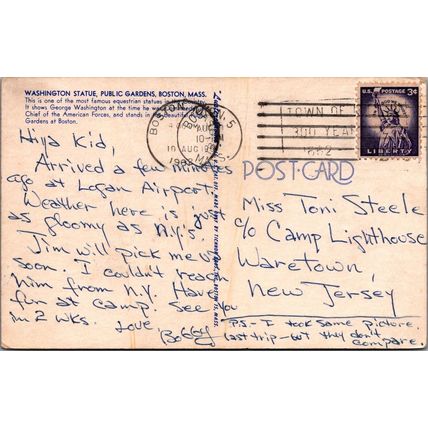 WASHINGTON STATUE, PUBLIC GARDENS, BOSTON, MASS.
This is one of the most famous equestrian statues in the
It shows George Washington at the time he was
Chief of the American Forces, and stands in the beautiful
Gardens at Boston.
Hiya Kid,
Arrived a few minutes
ago at Logan Airport.
Weather here is just
as gloomy as N.Y.'s.
Jim will pick me up
soon. I couldn't reach
him from N.Y. Have
fun at camp. See you
in 2 wks.
Love,
Bobby
BOSTON
AUG
10
1962
MASS.
TOWN OF
300 YEAR
U.S. POSTAGE 3¢
LIBERTY
POST CARD
Miss Toni Steele
c/o Camp Lighthouse
Waretown,
New Jersey
P.S. - I took same picture
last trip - but they don't
compare.